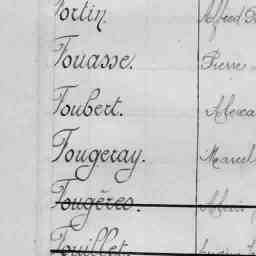 Fortin. Alfred
Fouasse. Pierre
Foubert.
Fougeray. Marcel
Fougères.
Fouillet.